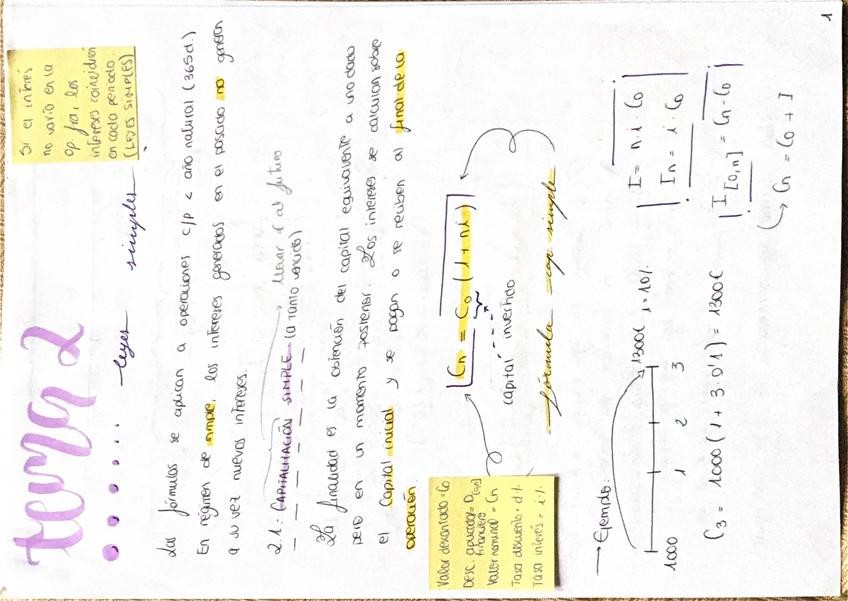 tema 2
leyes simples
Si el interés
no varía en la
op fra, los
intereses coinciden
en cada periodo
(LEYES SIMPLES)
Las fórmulas se aplican a operaciones c/p < año natural (365d.)
En régimen de simple, los intereses generados en el pasado no generan
a su vez nuevos intereses.
2.1: CAPITALIZACIÓN SIMPLE (a tanto vencido) llevar € al futuro
La finalidad es la obtención del capital equivalente a uno dado
pero en un momento posterior. Los intereses se calculan sobre
el capital inicial y se pagan o se reciben al final de la
operación.
Valor descontado = C0
Desc. aplicador = D
financiero
Valor nominal = Cn
Tasa descuento = d%
Tasa interés = i%
Cn = C0 (1 + ni)
capital invertido
fórmula cap simple
→ Ejemplo:
1300€ i=10%
1000 1 2 3
C3 = 1000 (1 + 3·0'1) = 1300€
I = n·i·C0
In = i·C0
I[0,n] = Cn - C0
↳ Cn = C0 + I
1